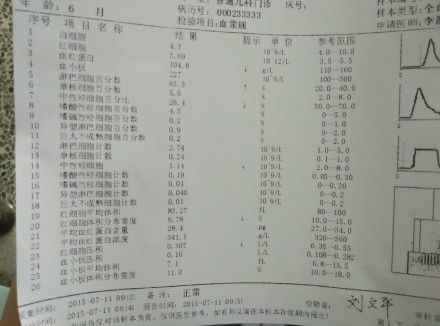 年 龄: 6 月 普通儿科门诊 床号:
病历号: 000233333 样本类型:全血
检验项目:血常规 申请医师:李
序号 项目名称 结果 提示 单位 参考范围
1 白细胞 4.3 10^9/L 4.0—10.0
2 红细胞 5.69 10^12/L 3.5—5.5
3 血红蛋白 104.8 ↓ g/L 110—160
4 血小板 227 10^9/L 100—300
5 淋巴细胞百分数 63.3 ↑ % 20.0—40.0
6 单核细胞百分数 5.6 % 2.0—8.0
7 中性粒细胞百分比 26.4 ↓ % 50.0—70.0
8 嗜酸性粒细胞百分数 4.5 % 0—5.0
9 嗜碱性粒细胞百分数 0.2 %
10 异型淋巴细胞百分数 0.9 %
11 巨大不成熟细胞百分数 0.2 %
12 淋巴细胞计数 2.74 10^9/L 1.0—5.0
13 单核细胞计数 0.24 10^9/L 0.1—1.0
14 中性粒细胞 1.14 ↓ 10^9/L 2.0—8.0
15 嗜酸性粒细胞计数 0.19 10^9/L 0.05—0.30
16 嗜碱性粒细胞计数 0.01 10^9/L 0—0.20
17 异型淋巴细胞计数 0.040 10^9/L 0—0.2
18 巨大不成熟细胞计数 0.01 10^9/L 0—0.2
19 红细胞平均体积 83.27 fL 80—100
20 红细胞体积分布宽度 9.78 ↓ % 10.0—15.0
21 平均血红蛋白含量 28.4 pg 27.0—34.0
22 平均血红蛋白浓度 341.1 g/L 320—360
23 红细胞压积 0.307 ↓ L/L 0.35—0.55
24 血小板压积 0.16 L/L 0.108—0.282
25 血小板平均体积 7.1 fL 6.8—13.5
26 血小板体积分布宽度 11.0 % 10.0—18.0
备注: 正常
采集时间: 2015-07-11 09:2 报告时间: 2015-07-11 09:57 检验者: 刘文军